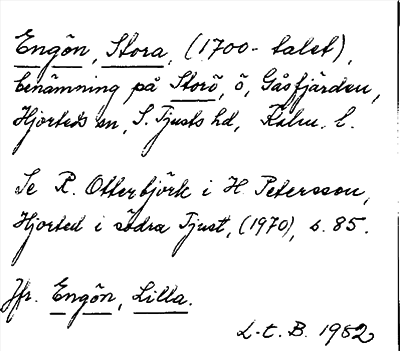 Engön, Stora, (1700-talet),
benämning på Storö, ö, Gåsfjärden,
Hjorteds sn, S. Tjusts hd, Kalm. l.
Se R. Otterbjörk i H. Petersson,
Hjorted i södra Tjust, (1970), s. 85.
Jfr. Engön, Lilla.
L-t. B. 1982